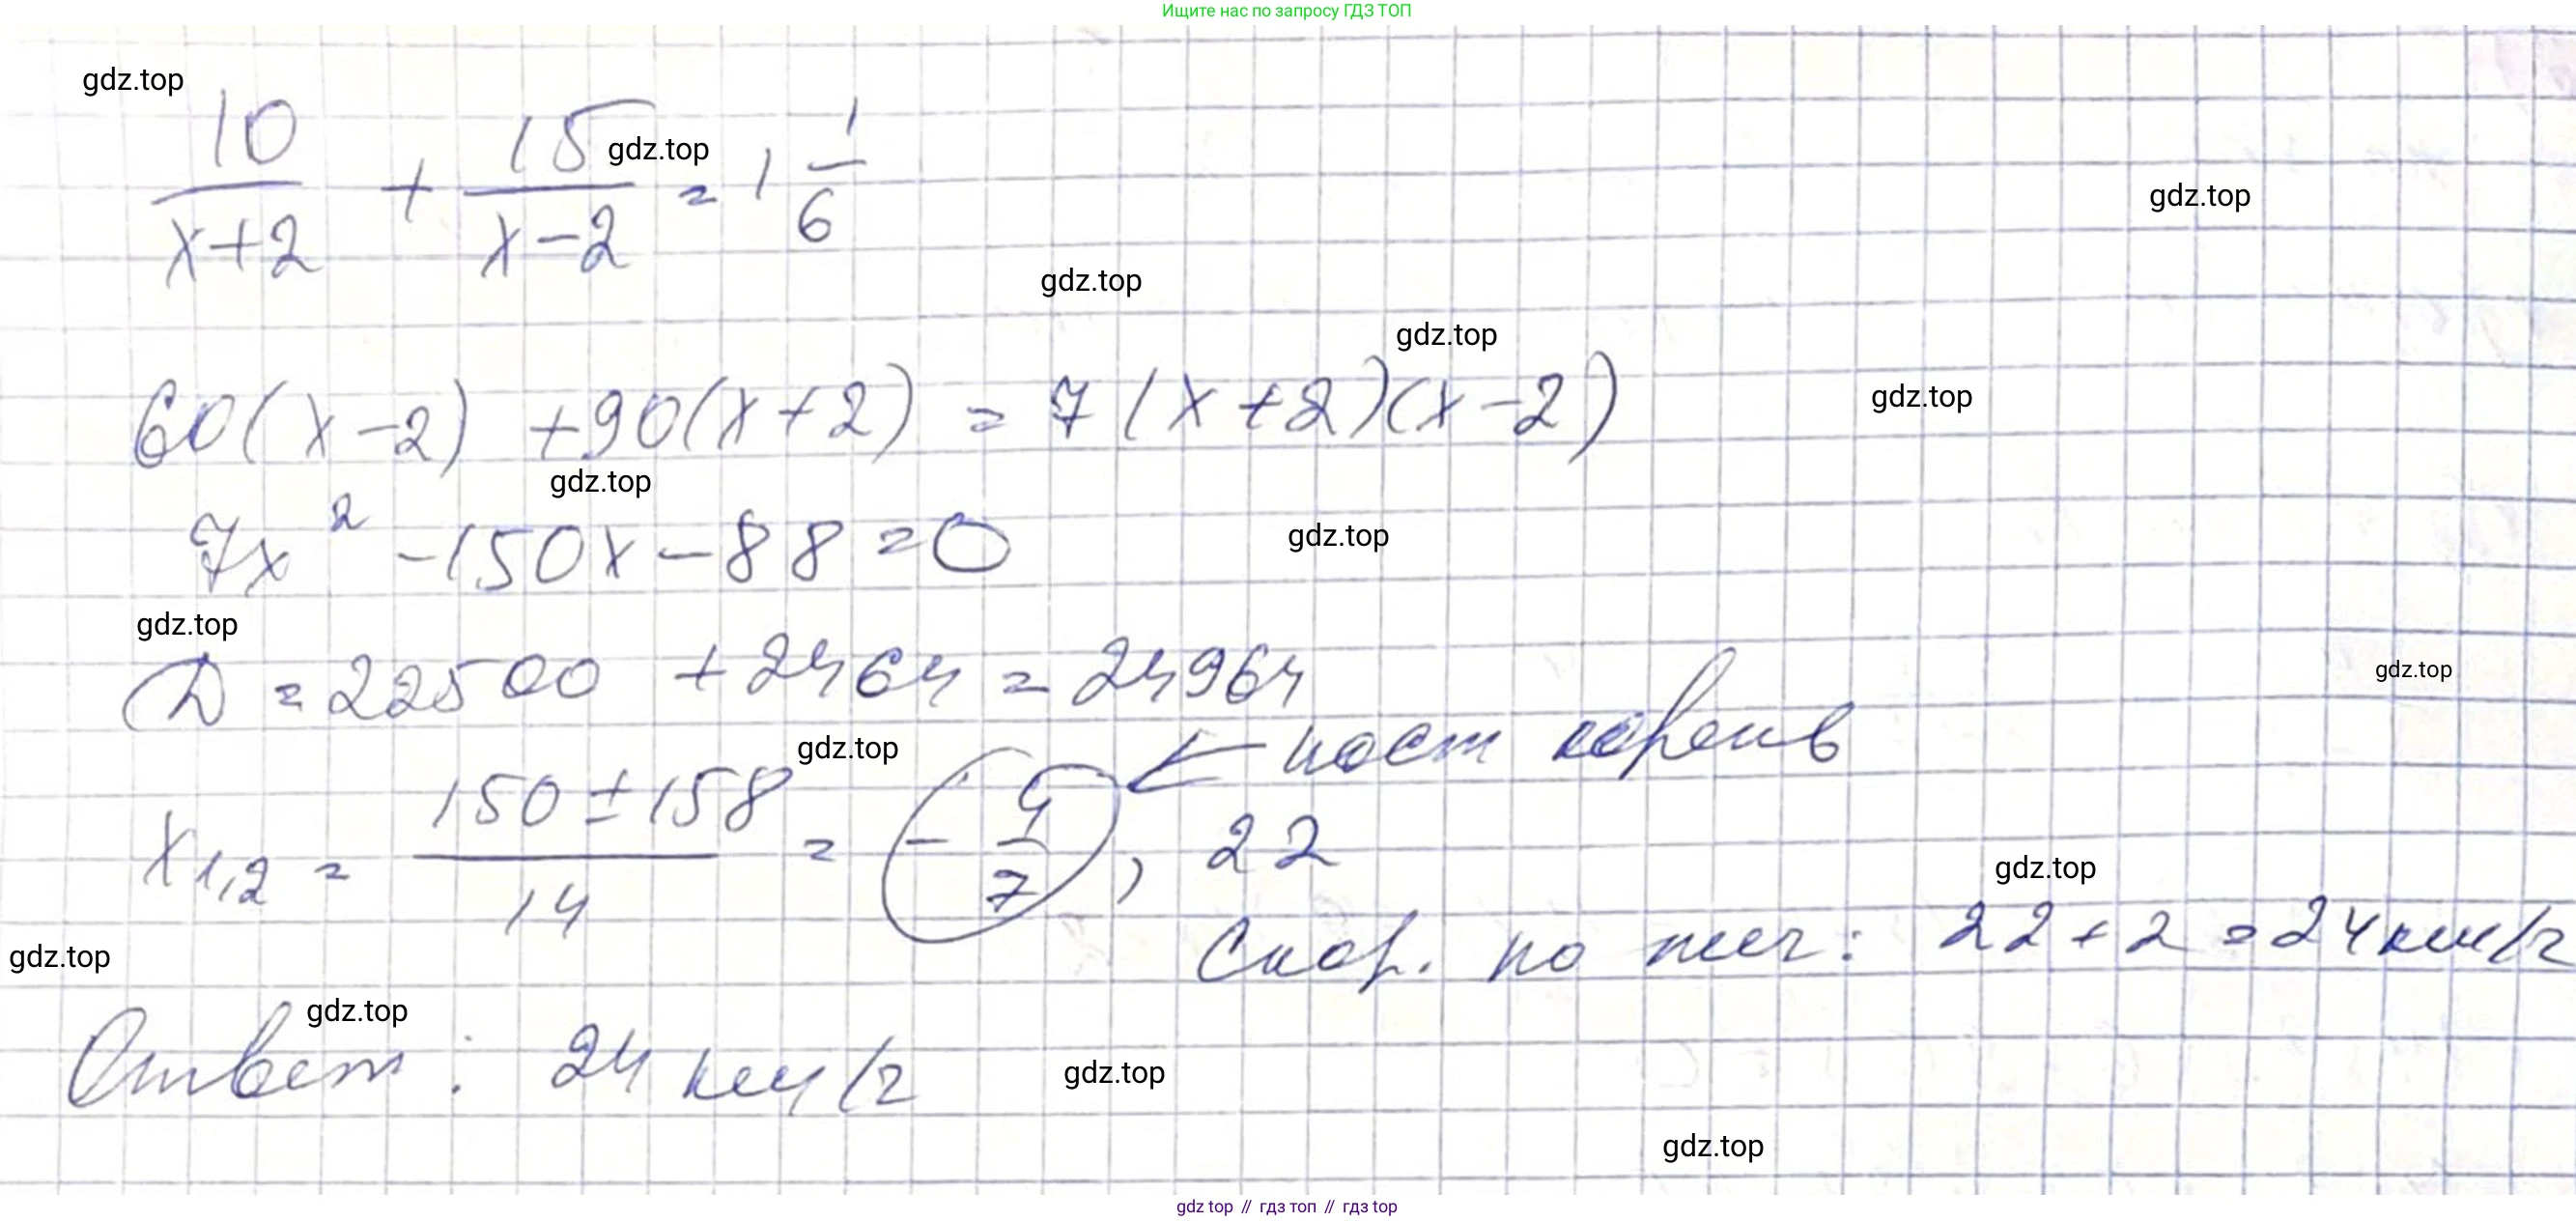 Ищите нас по запросу ГДЗ ТОП
gdz.top
10/(x+2) + 15/(x-2) = 1 1/6
gdz.top
gdz.top
gdz.top
gdz.top
60(x-2) +90(x+2) = 7(x+2)(x-2)
gdz.top
gdz.top
7x² -150x-88=0
gdz.top
gdz.top
D =22500 +2464 = 24964
gdz.top
gdz.top
x1,2 = (150±158)/14 = (-4/7), 22 ← пост корень
gdz.top
Скор. по теч: 22+2=24км/ч
gdz.top
gdz.top
Ответ: 24 км/ч
gdz.top
gdz.top
gdz top // гдз топ // гдз top